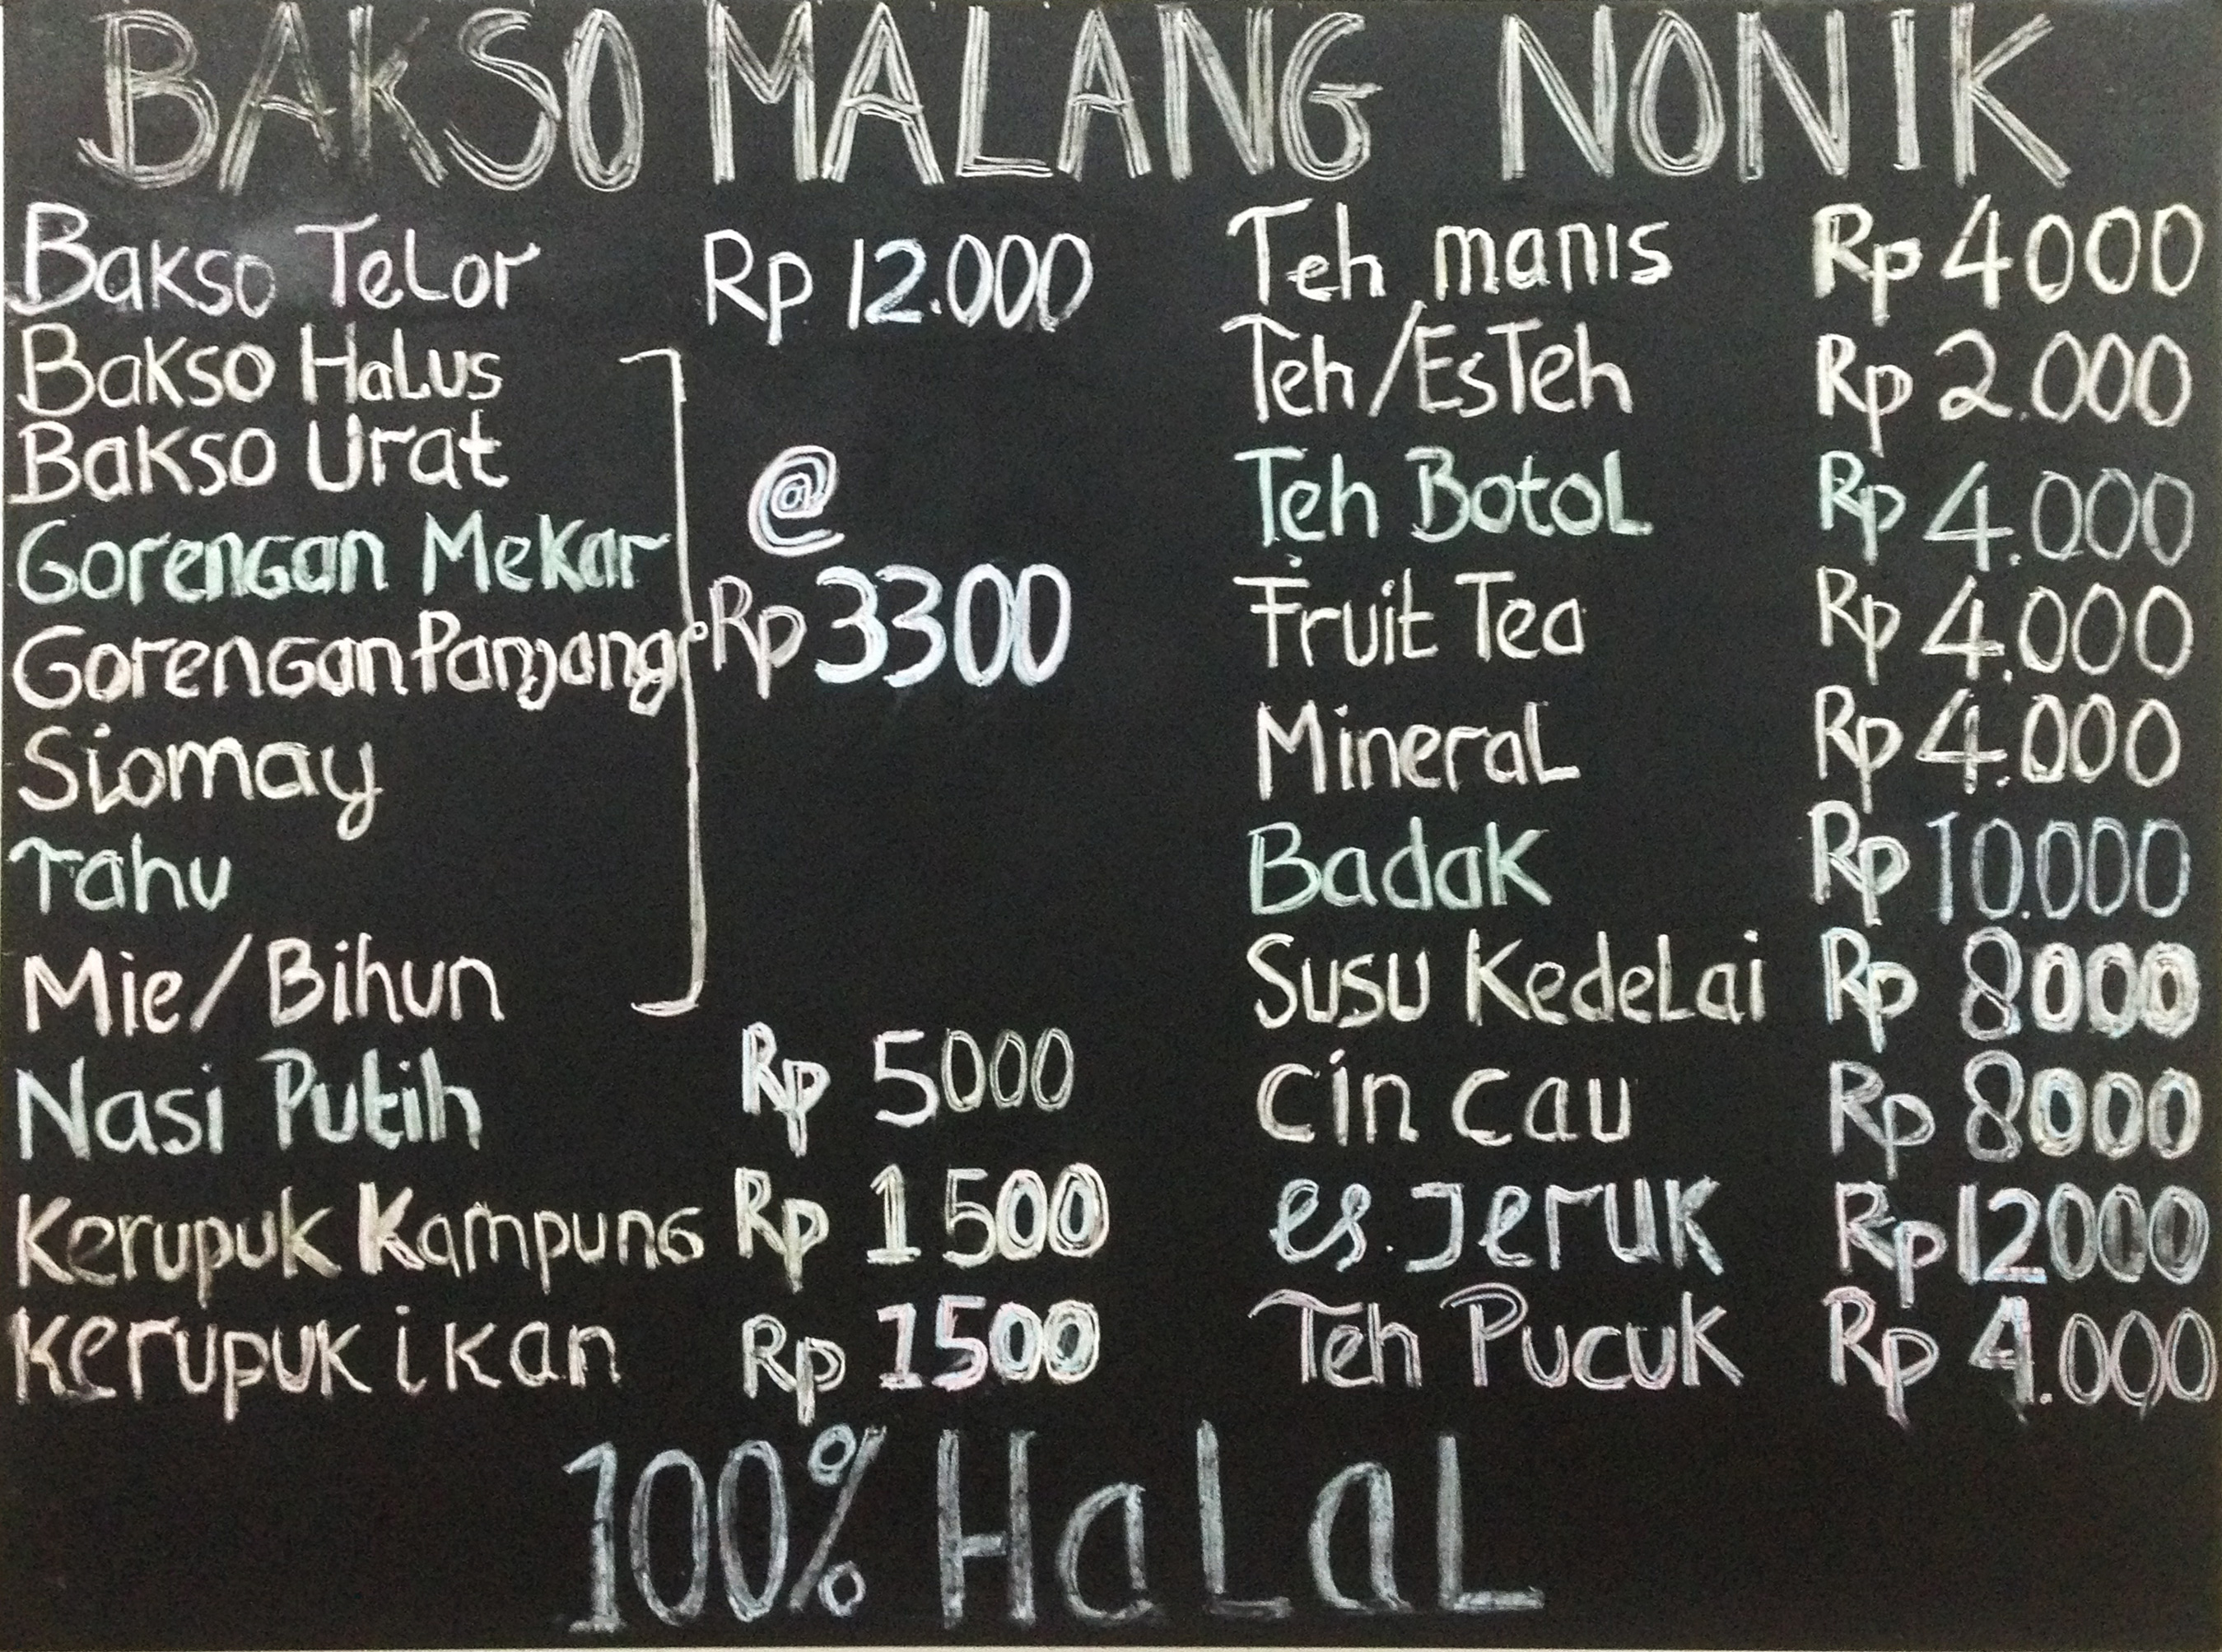 BAKSO MALANG NONIK
Bakso Telor Rp 12.000
Bakso Halus
Bakso Urat
Gorengan Mekar
Gorengan Panjang
Siomay
Tahu
Mie/Bihun
@
Rp 3300
Nasi Putih Rp 5000
Kerupuk Kampung Rp 1500
Kerupuk ikan Rp 1500
Teh manis Rp 4000
Teh/Es Teh Rp 2.000
Teh Botol Rp 4.000
Fruit Tea Rp 4.000
Mineral Rp 4.000
Badak Rp 10.000
Susu Kedelai Rp 8000
Cin Cau Rp 8000
es. Jeruk Rp 12000
Teh Pucuk Rp 4.000
100% Halal